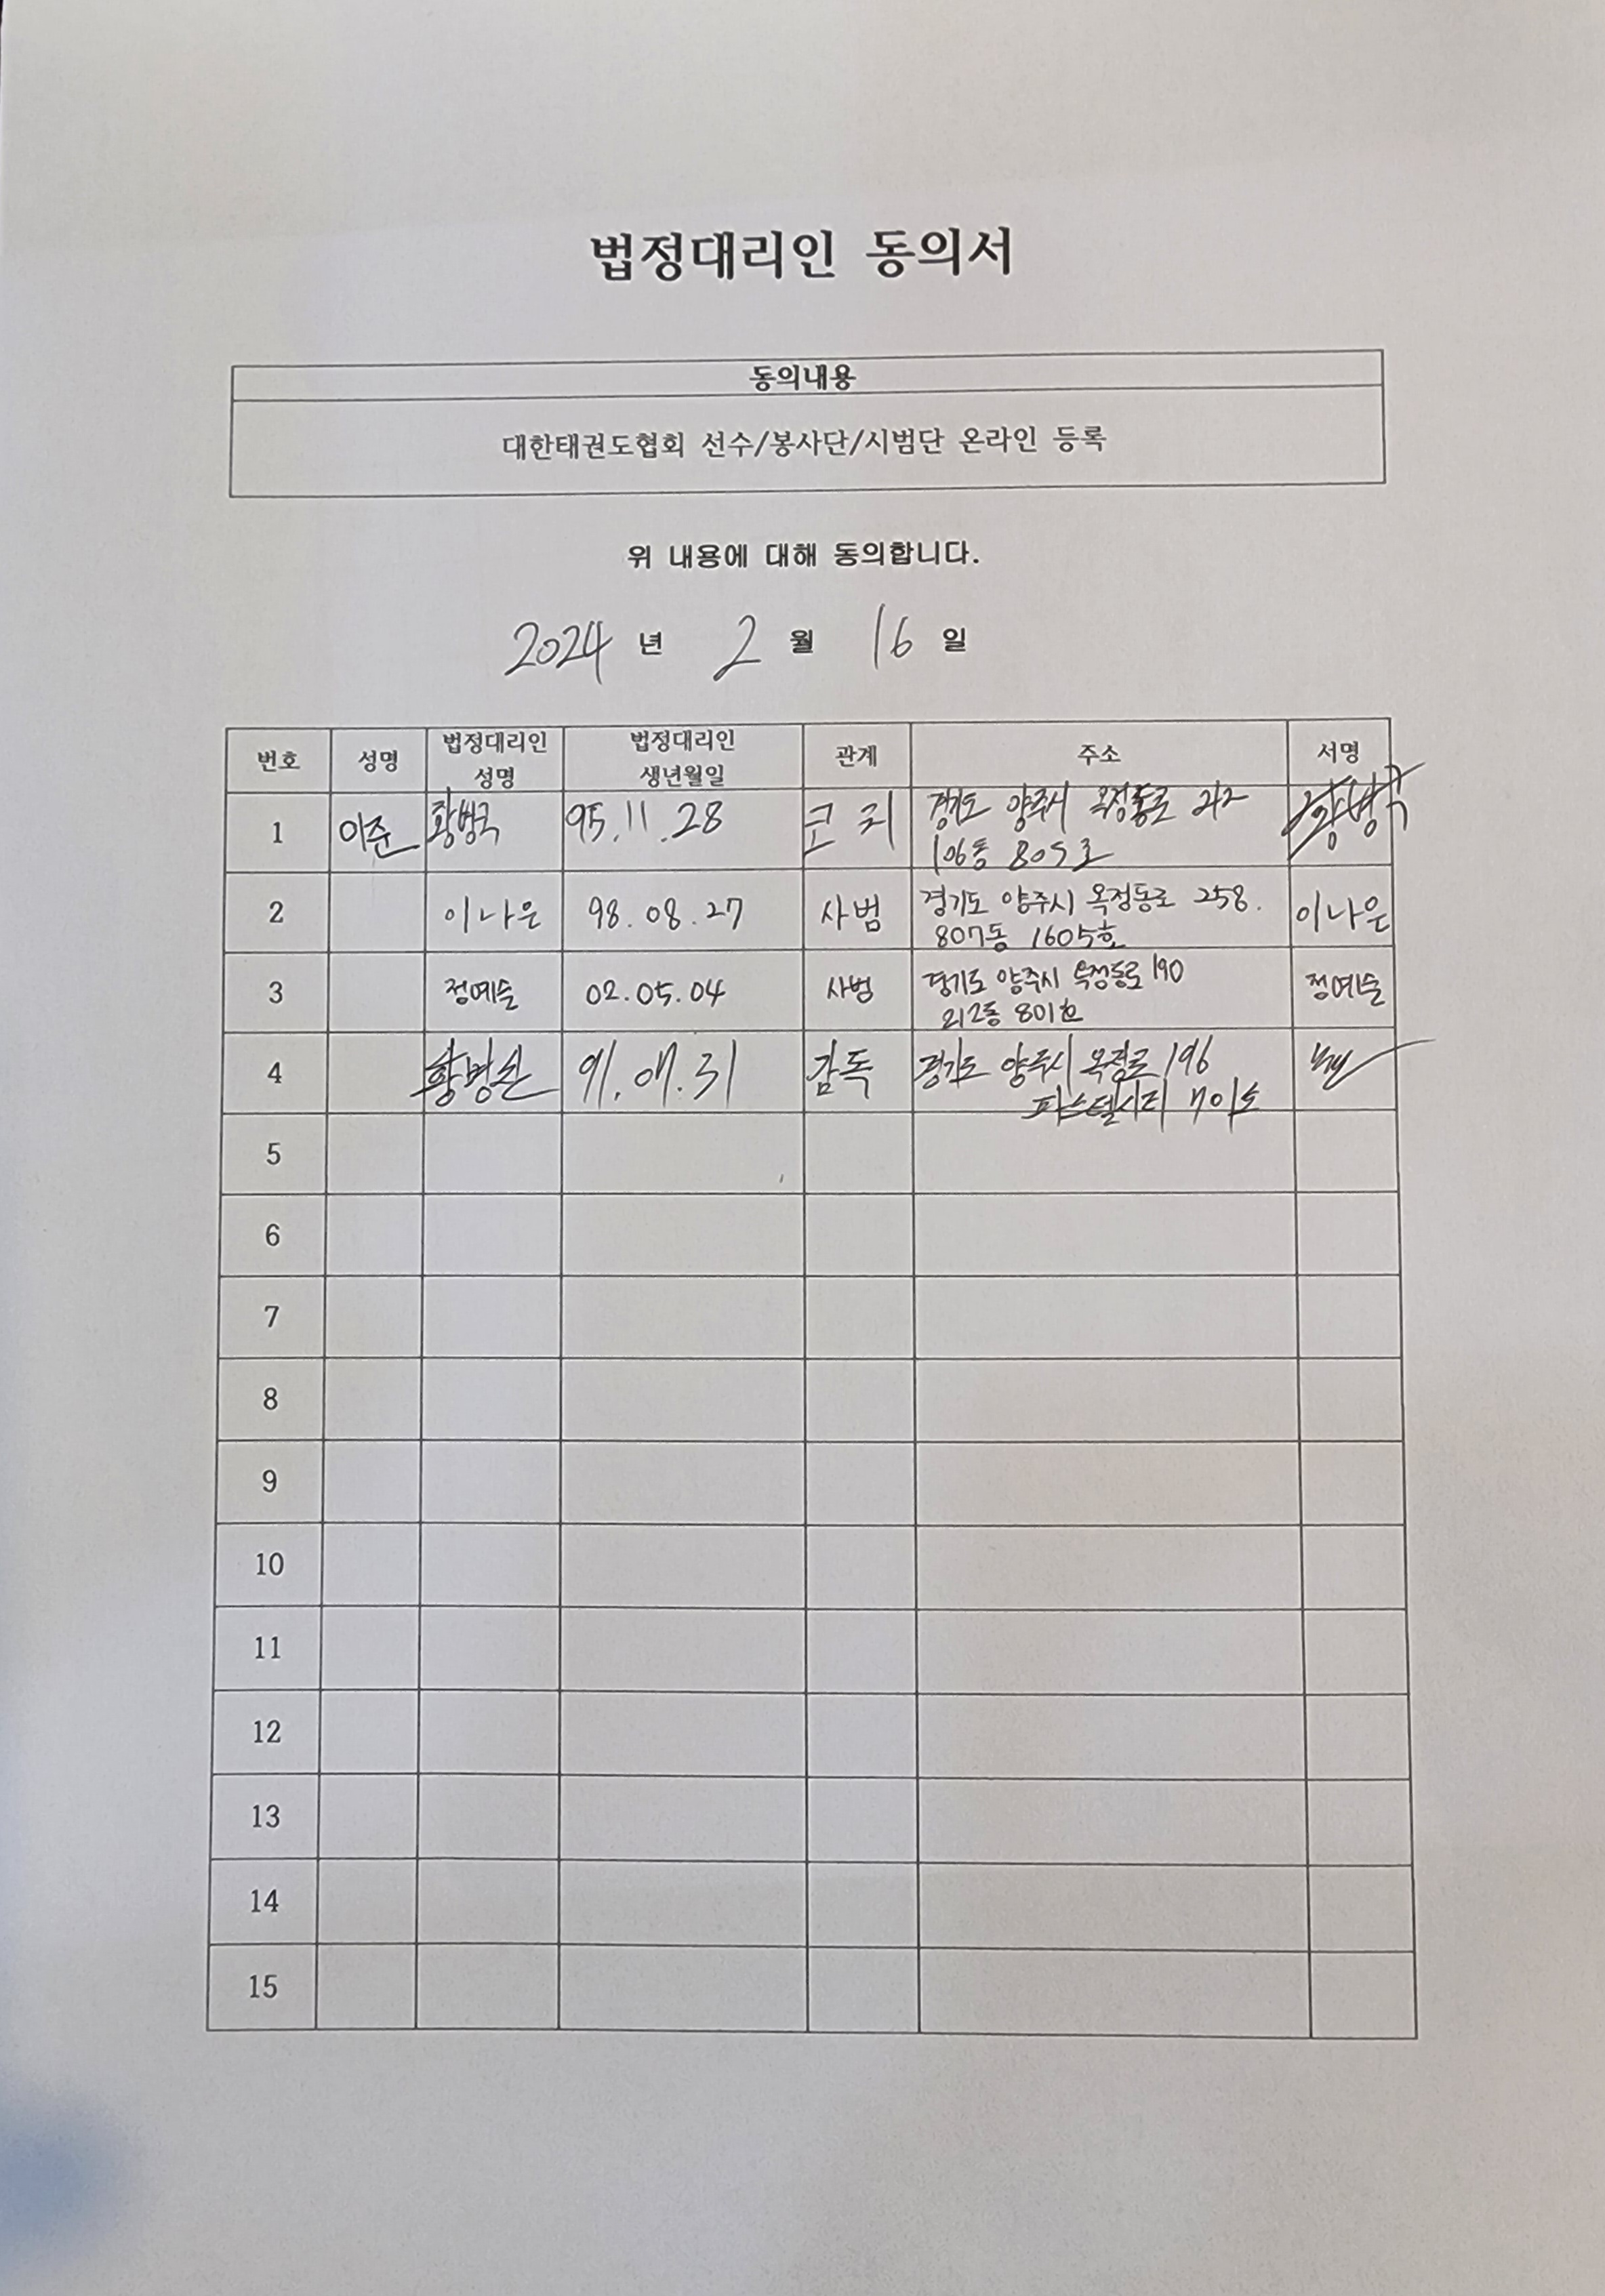 법정대리인 동의서
동의내용
대한태권도협회 선수/봉사단/시범단 온라인 등록
위 내용에 대해 동의합니다.
2024 년 2 월 16 일
번호 성명 법정대리인 성명 법정대리인 생년월일 관계 주소 서명
1 이준 황병국 95.11.28 코치 경기도 양주시 옥정동로 212
106동 805호 황병국
2 이나은 98.08.27 사범 경기도 양주시 옥정동로 258.
807동 1605호 이나은
3 정예슬 02.05.04 사범 경기도 양주시 옥정동로 190
212동 801호 정예슬
4 91.07.31 감독 경기도 양주시 옥정로 196
파스텔시티 701호
5
6
7
8
9
10
11
12
13
14
15